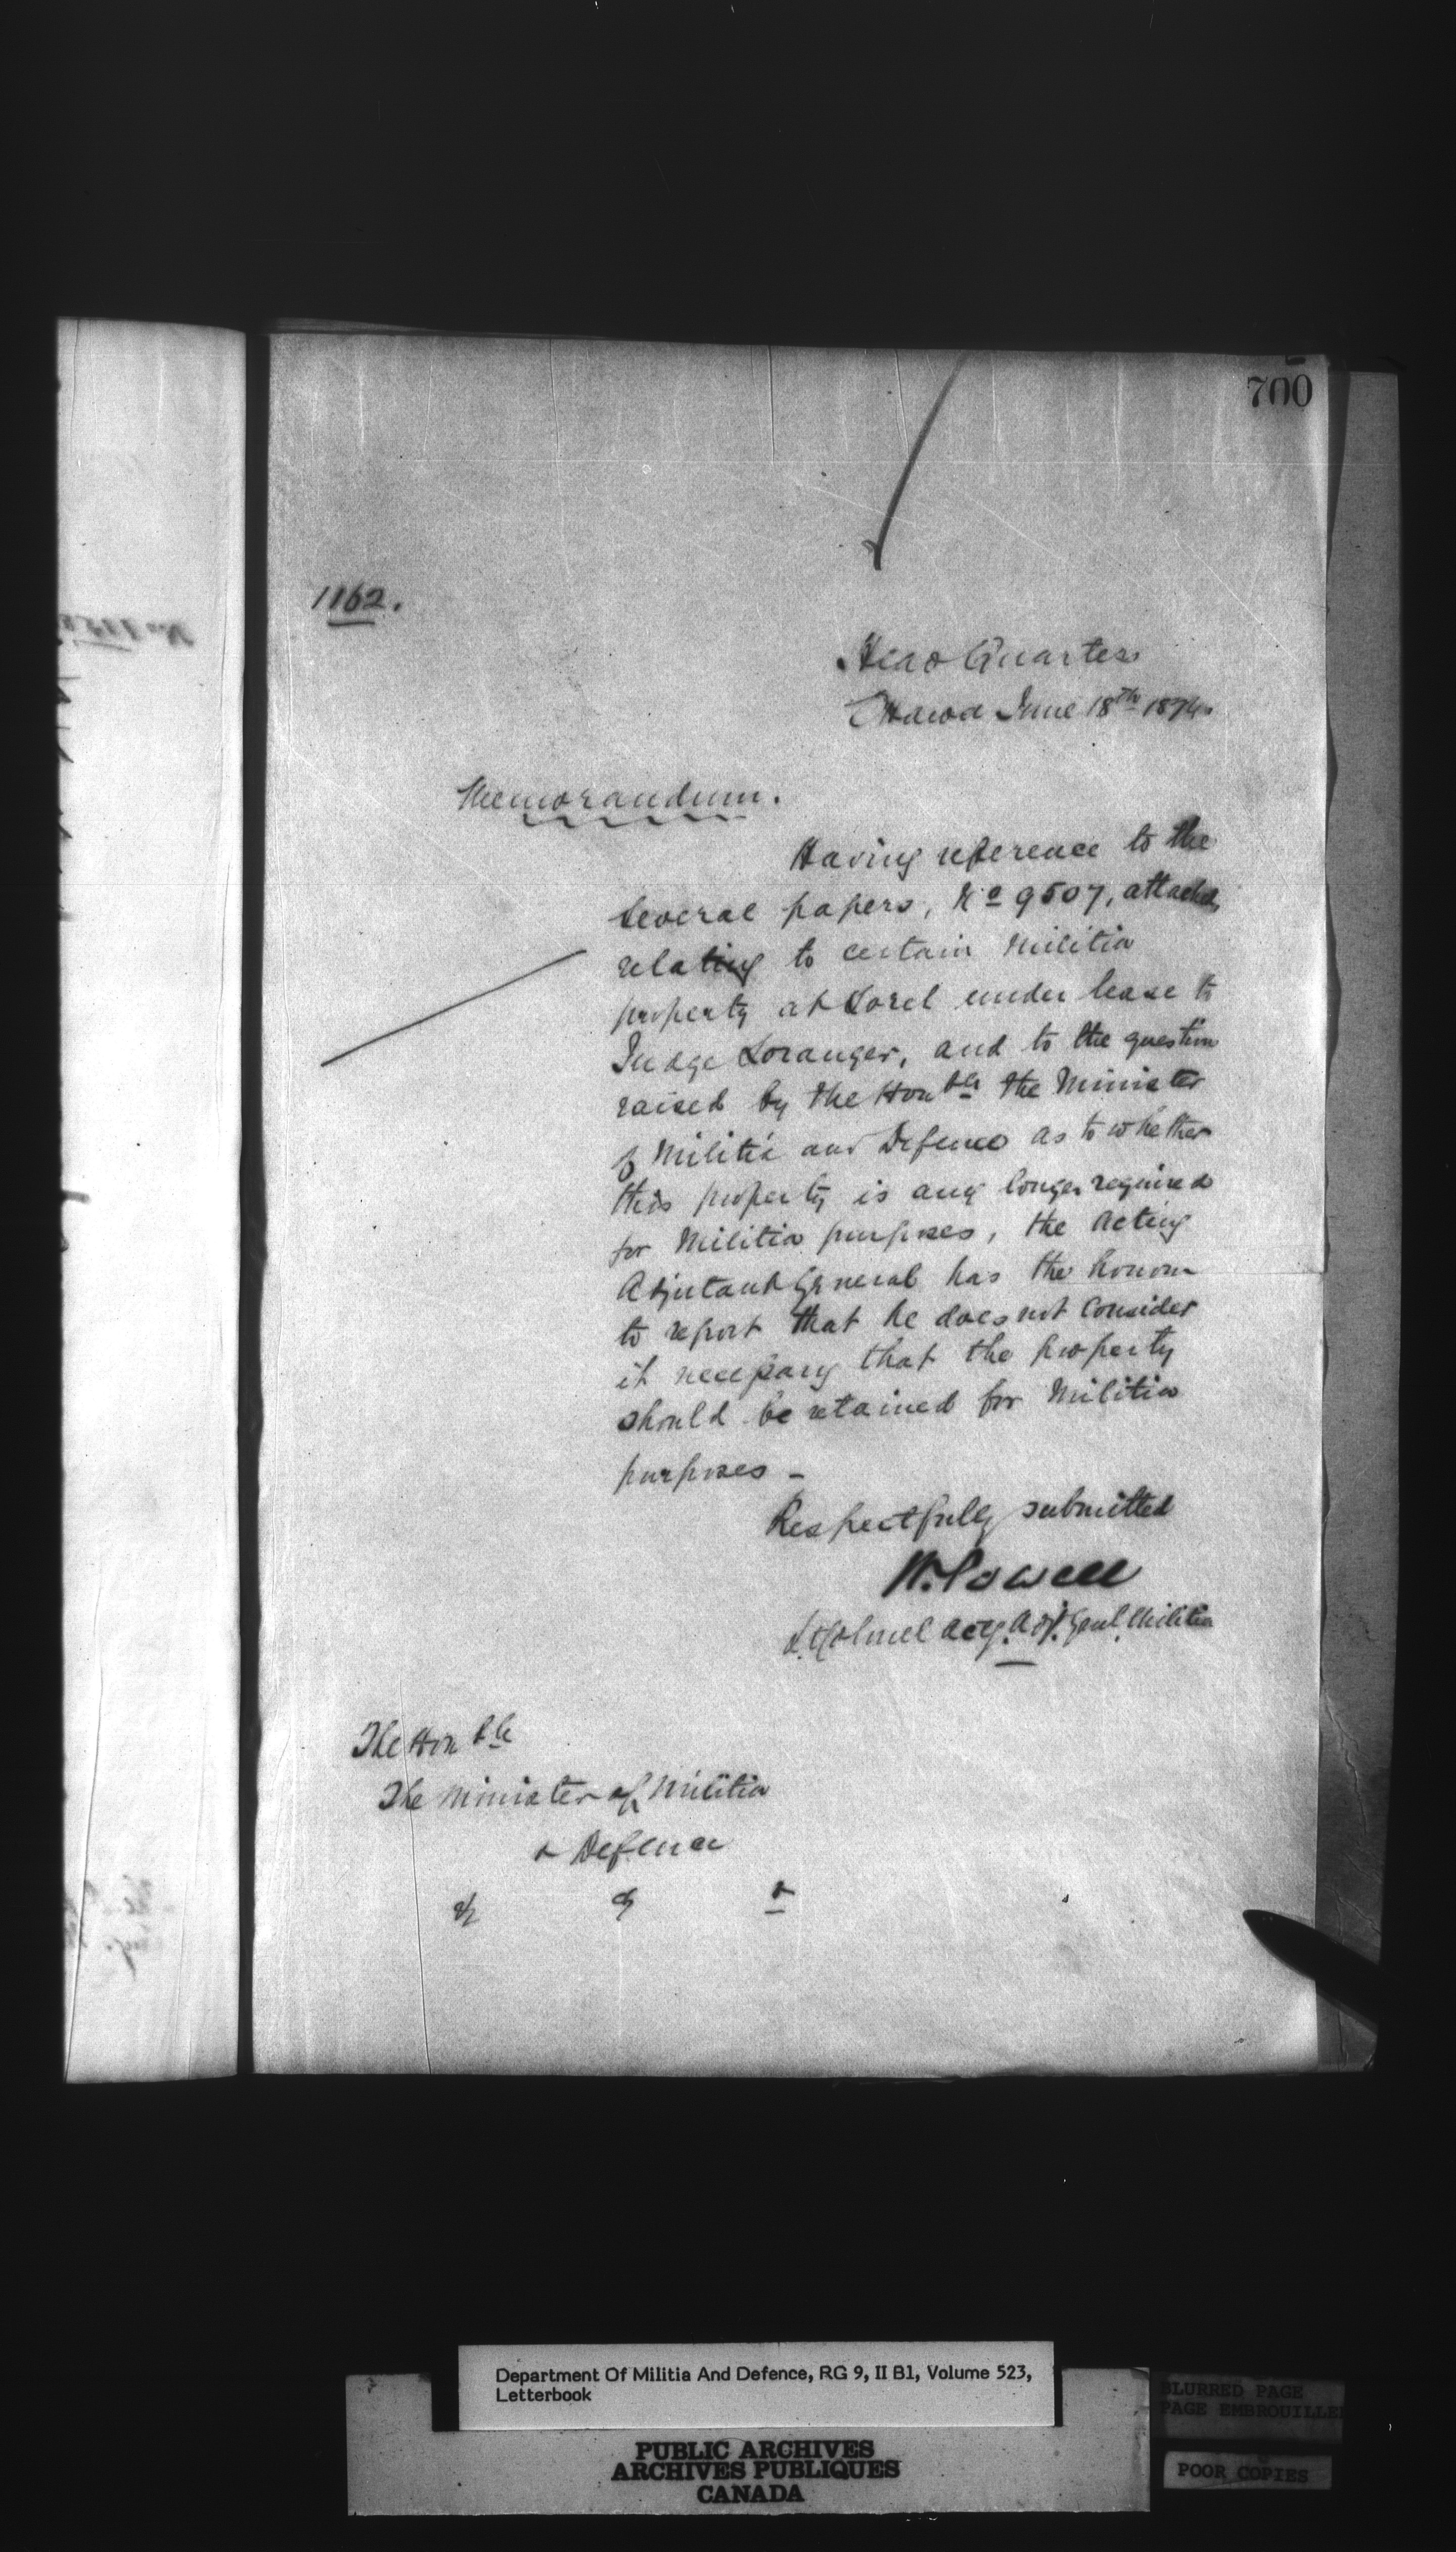 700
1162.
Head Quarters
Ottawa June 18th 1874
Memorandum.
Having reference to the
several papers, No 9507, attached,
relating to certain Militia
property at Sorel under lease to
Judge Loranger, and to the question
raised by the Honble the Minister
of Militia and Defence as to whether
this property is any longer required
for Militia purposes, the Acting
Adjutant General has the honour
to report that he does not consider
it necessary that the property
should be retained for Militia
purposes –
Respectfully submitted
W. Powell
Lt. Colonel Actg. Adj. Genl. Militia
The Honble
The Minister of Militia
& Defence
& & &
Department Of Militia And Defence, RG 9, II B1, Volume 523,
Letterbook
PUBLIC ARCHIVES
ARCHIVES PUBLIQUES
CANADA
BLURRED PAGE
PAGE EMBROUILLEE
POOR COPIES